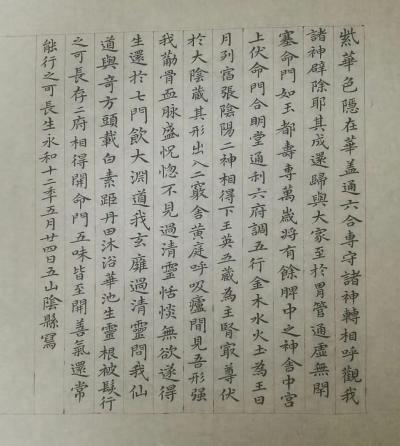 紫華色隱在華蓋通六合專守諸神轉相呼觀我
諸神辟除耶其成還歸與大家至於胃管通虛無閉
塞命門如玉都壽專萬歲將有餘脾中之神舍中宮
上伏命門合明堂通利六府調五行金木水火土為王日
月列宿張陰陽二神相得下玉英五藏為主腎冣尊伏
於大陰藏其形出入二竅舍黃庭呼吸廬間見吾形强
我筋骨血脈盛怳惚不見過清靈恬惔無欲遂得
生還於七門飲大淵道我玄膺過清靈問我仙
道與奇方頭載白素距丹田沐浴華池生靈根被髮行
之可長存二府相得開命門五味皆至開善氣還常
能行之可長生永和十二年五月廿四日五山陰縣寫